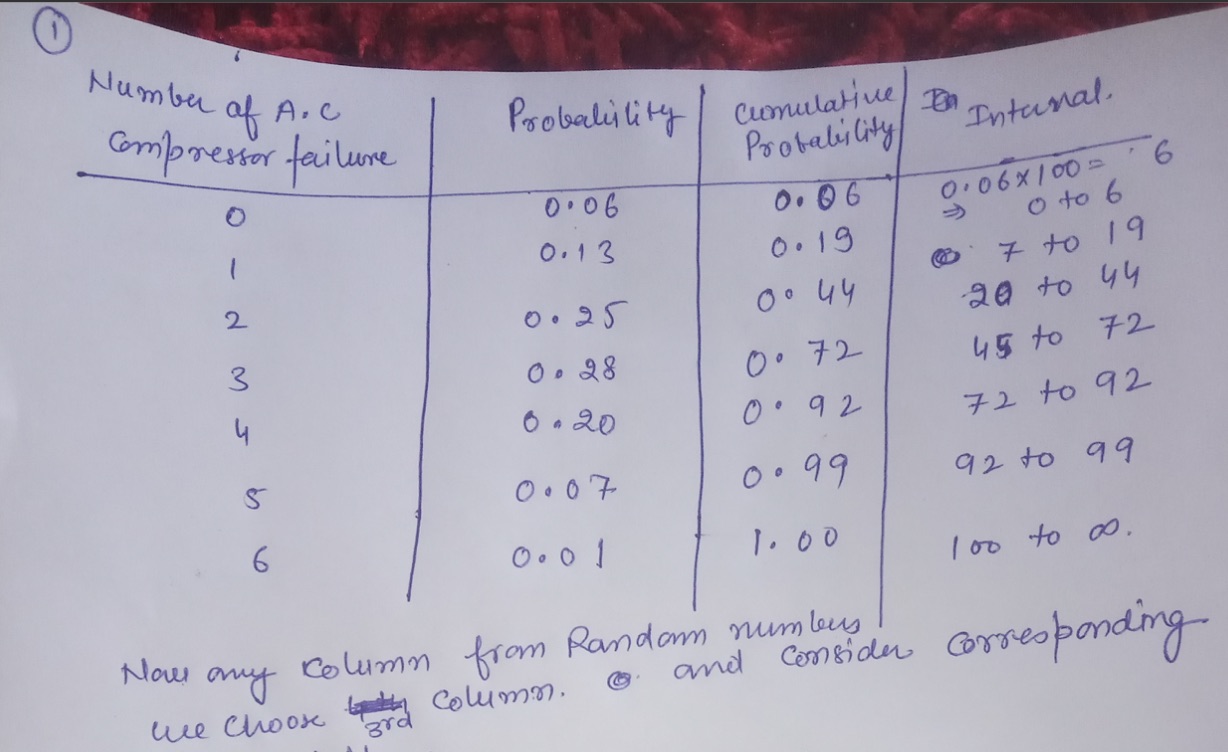 1
Number of A.C Compressor failure | Probability | Cumulative Probability | Interval.
0 | 0.06 | 0.06 | 0.06×100= 6 ⇒ 0 to 6
1 | 0.13 | 0.19 | 7 to 19
2 | 0.25 | 0.44 | 20 to 44
3 | 0.28 | 0.72 | 45 to 72
4 | 0.20 | 0.92 | 72 to 92
5 | 0.07 | 0.99 | 92 to 99
6 | 0.01 | 1.00 | 100 to ∞.
Now any column from Random numbers
we choose 3rd column. and consider corresponding